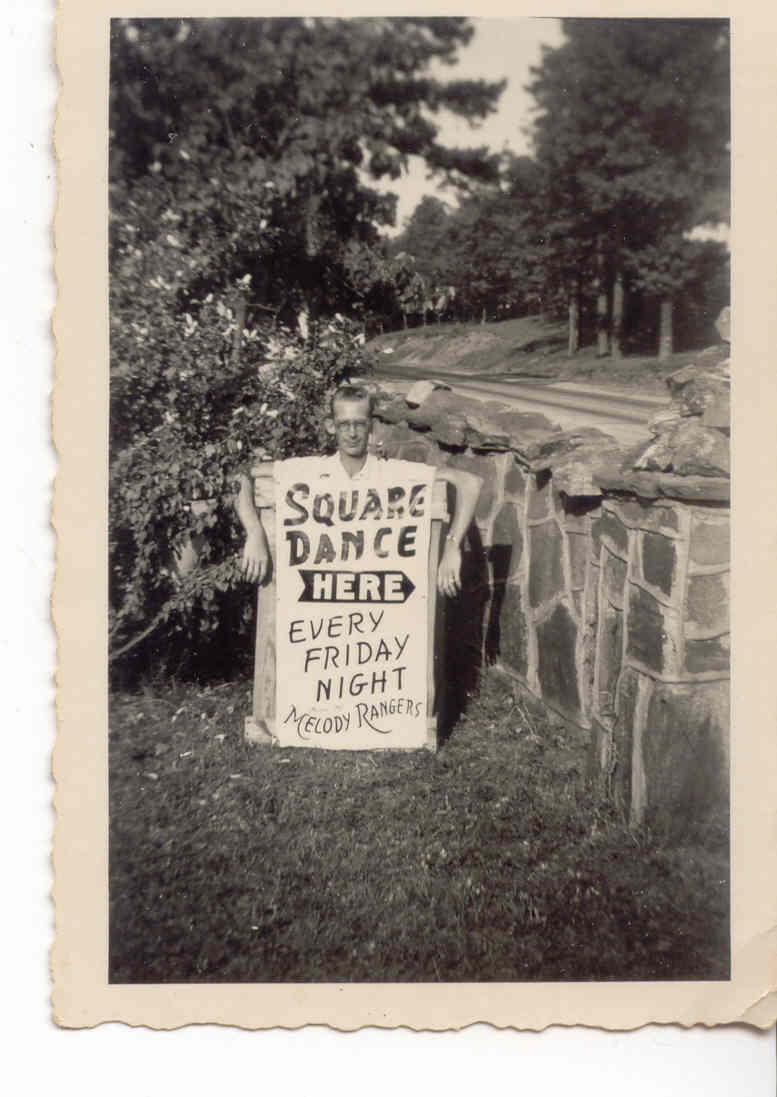 SQUARE
DANCE
HERE
EVERY
FRIDAY
NIGHT
MELODY RANGERS